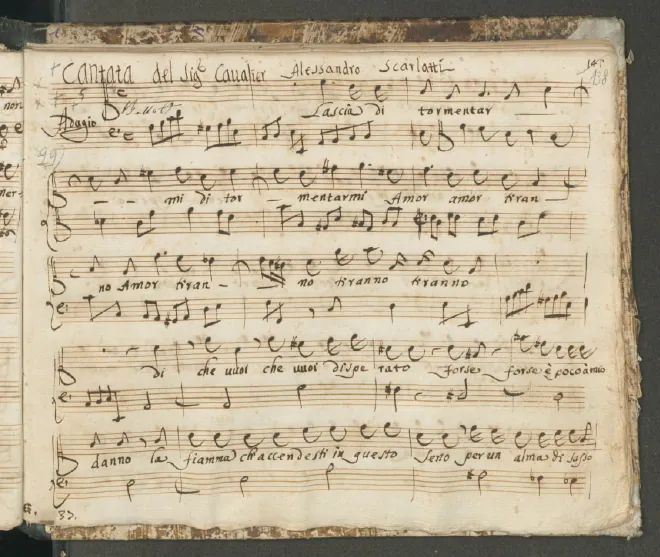 Cantata del Sig.r Cavalier Alessandro Scarlatti
147
138
Lascia di tormentar
Adagio
99
mi di tor mentarmi Amor amor tiran
no Amor tiran no tiranno tiranno
di che vuoi che vuoi dispe rato forse forse è poco à mio
danno la fiamma ch'accendesti in questo seno per un alma di sasso
33.